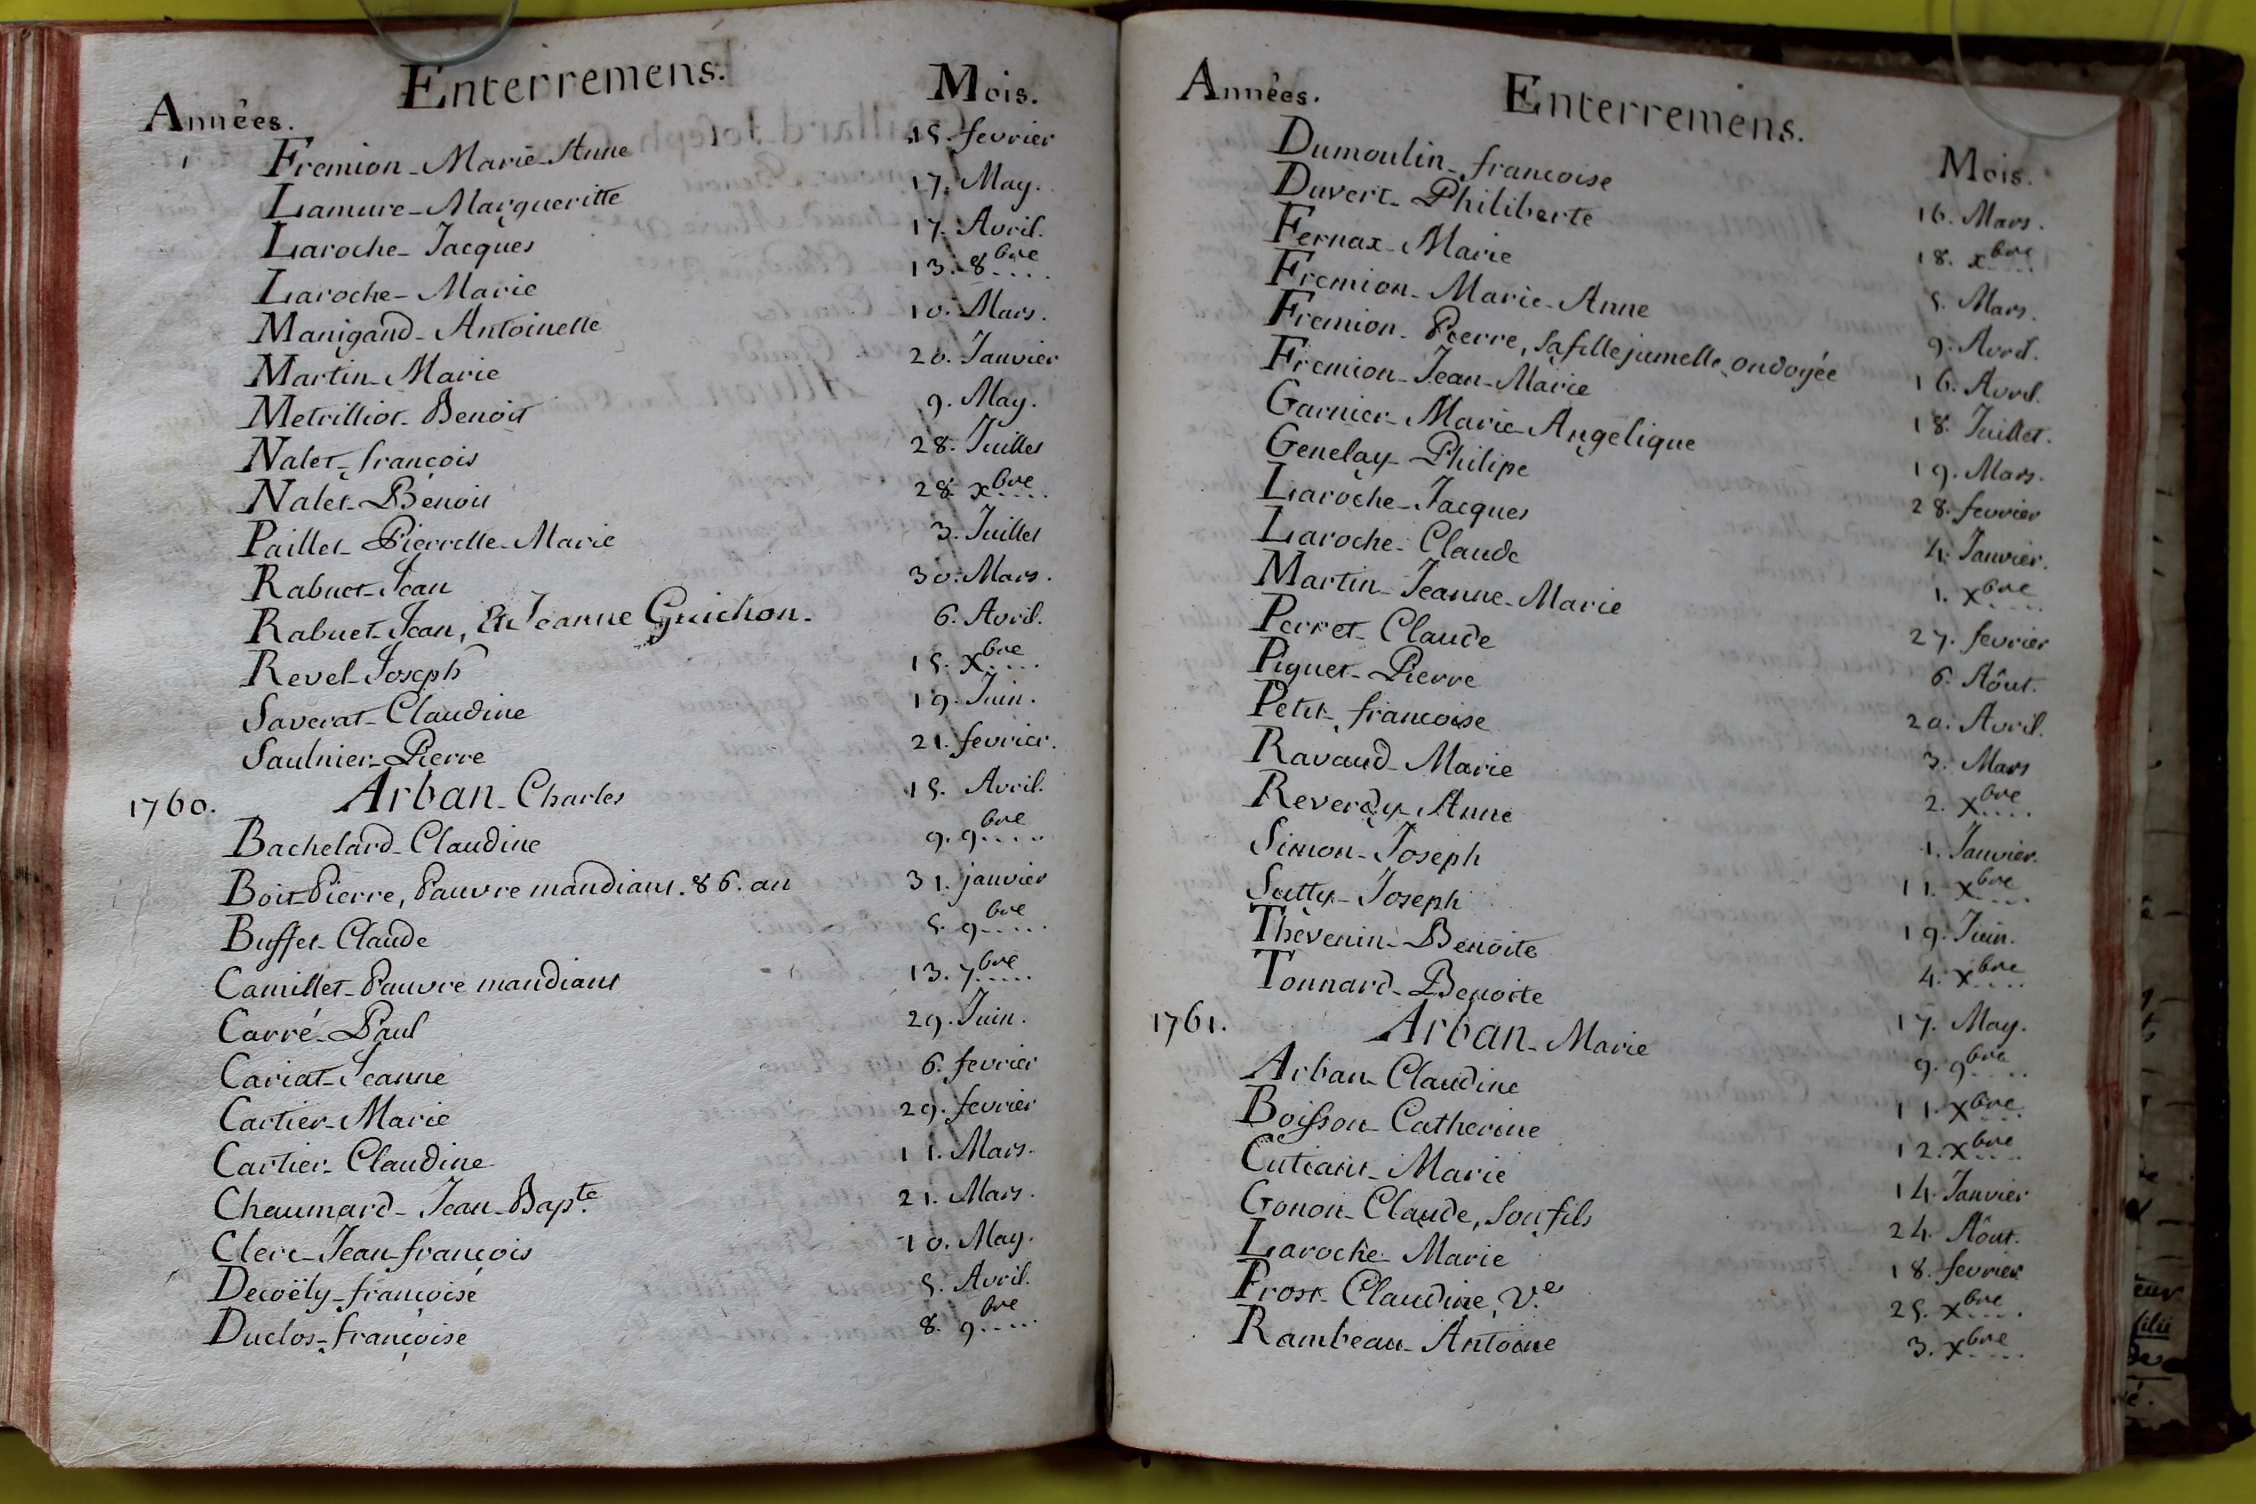 Années. Enterremens. Mois.
Fremion - Marie - Anne 15. fevrier
Lamure - Margueritte 17. May.
Laroche - Jacques 17. Avril.
Laroche - Marie 13. 8bre
Manigand - Antoinette 10. Mars.
Martin - Marie 20. Janvier
Metrilliot - Benoit 9. May.
Nalet - françois 28. Juillet
Nalet - Benoit 28. xbre
Paillet - Pierrette - Marie 3. Juillet
Rabuet - Jean 30. Mars.
Rabuet - Jean, Et Jeanne Guichon. 6. Avril.
Revel - Joseph 15. xbre
Saverat - Claudine 19. Juin.
Saulnier - Pierre 21. fevrier.
1760. Arban - Charles 15. Avril.
Bachelard - Claudine 9. 9bre
Boit - Pierre, Pauvre mandiant. 86. an 31. janvier
Buffet - Claude 5. 9bre
Camillet - Pauvre mandiant 13. 7bre
Carré - Paul 29. Juin.
Cariat - Jeanne 6. fevrier
Cartier - Marie 29. fevrier
Cartier - Claudine 11. Mars.
Chaumard - Jean - Bapte. 21. Mars.
Clerc - Jean françois 10. May.
Decoëly - françoise 5. Avril.
Duclos - françoise 8. 9bre
Années. Enterremens. Mois.
Dumoulin - francoise 16. Mars.
Duvert - Philiberte 18. xbre
Fernax - Marie 5. Mars.
Fremion - Marie - Anne 9. Avril.
Fremion - Pierre, sa fille jumelle ondoyée 16. Avril.
Fremion - Jean - Marie 18. Juillet.
Garnier - Marie - Angélique 19. Mars.
Genelay - Philipe 28. fevrier
Laroche - Jacques 4. Janvier.
Laroche - Claude 1. xbre
Martin - Jeanne - Marie 27. fevrier
Perret - Claude 6. Aôut.
Piguet - Pierre 20. Avril.
Petit - francoise 3. Mars
Ravaud - Marie 2. xbre
Reverdy - Anne 1. Janvier.
Simon - Joseph 11. xbre
Sutty - Joseph 19. Juin.
Thévenin - Benoite 4. xbre
Tonnard - Benoite 17. May.
1761. Arban - Marie 9. 9bre
Arban - Claudine 11. xbre
Boisson - Catherine 12. xbre
Cutiant - Marie 14. Janvier
Gonon - Claude, son fils 24. Aôut.
Laroche - Marie 18. fevrier
Prost - Claudine, Ve. 25. xbre
Rambeau - Antoine 3. xbre